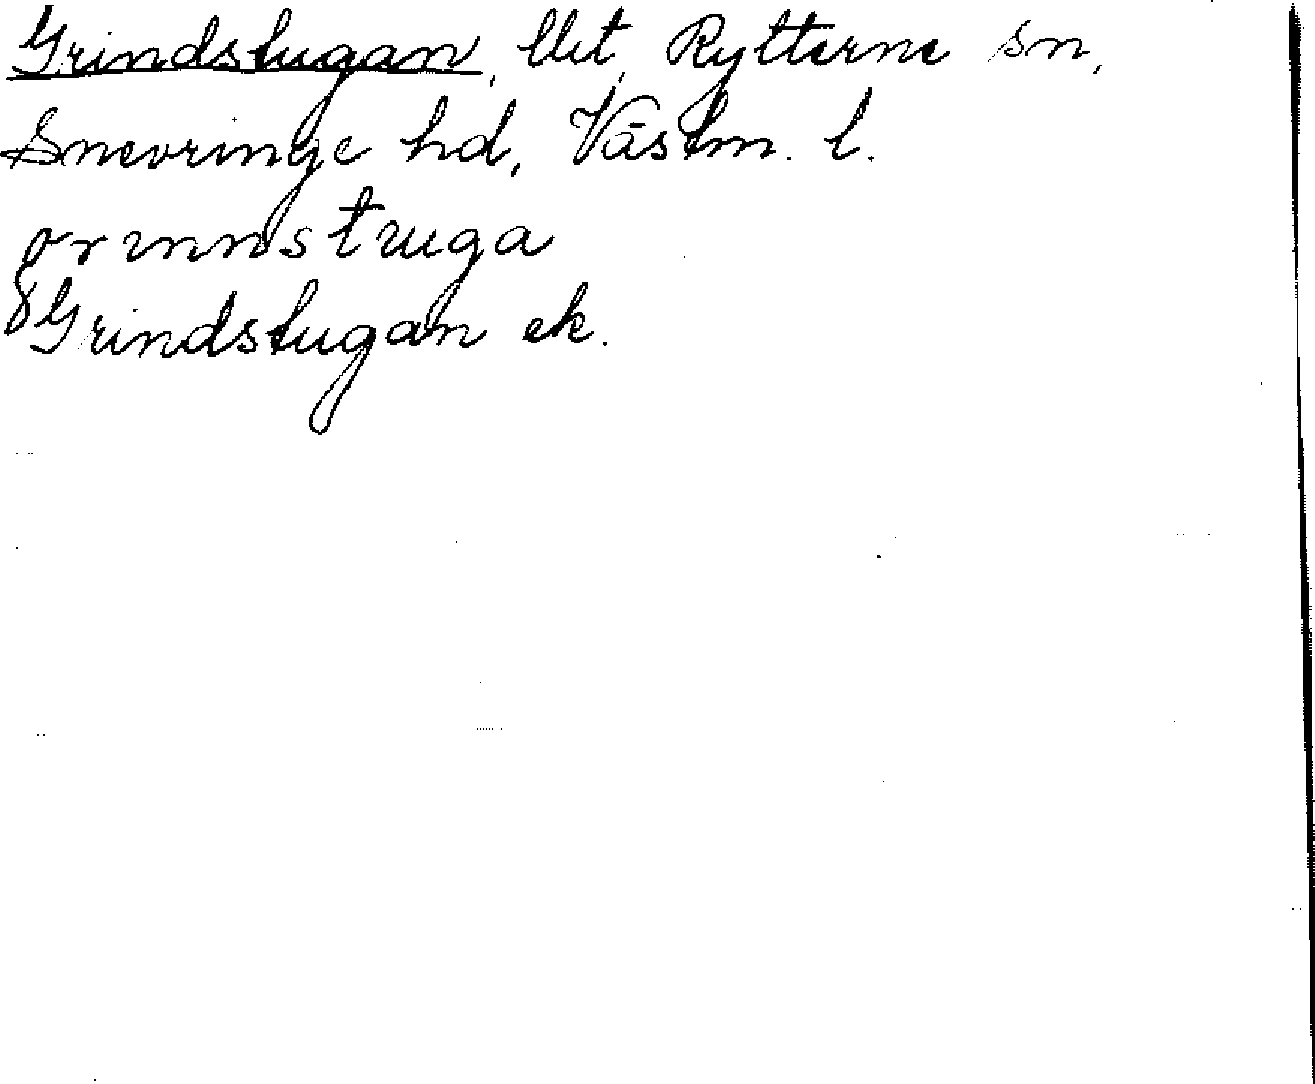 Grindstugan, lht, Rytterne sn,
Snevringe hd, Västm. l.
grinnstuga
Grindstugan ek.